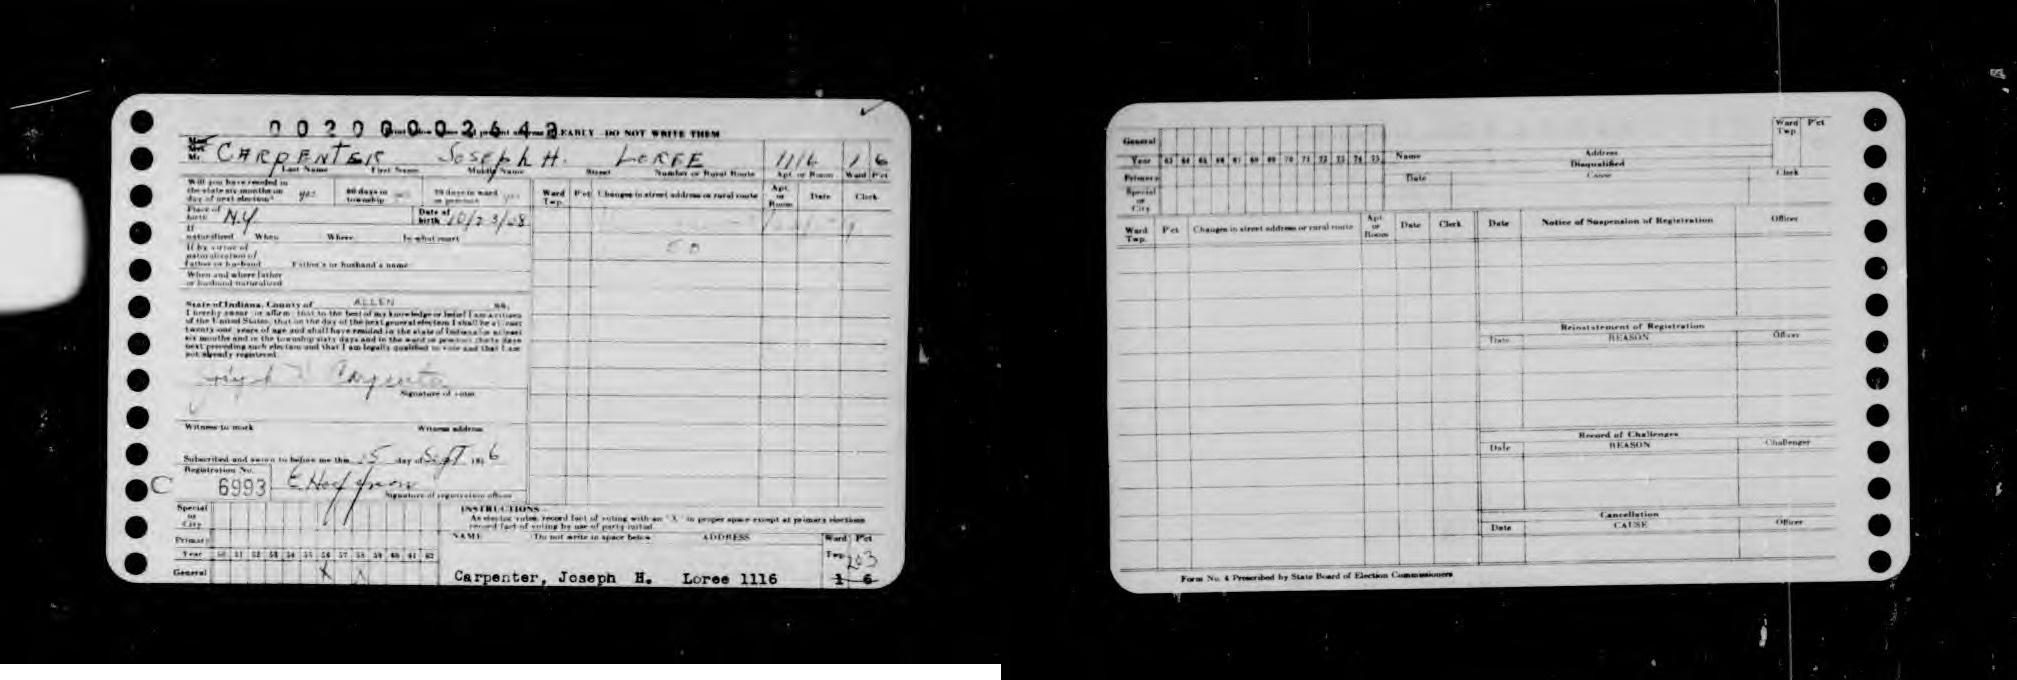 00200002643
EARLY DO NOT WRITE THEM
Mr. CARPENTER JOSEPH H. LOREE 1116 1 6
Last Name First Name Middle Name Street Number or Rural Route Apt. or Room Ward P'ct
Will you have resided in the state six months on day of next election? yes 60 days in township yes 30 days in ward or precinct yes
Place of birth N.Y. Date of birth 10/23/08
If naturalized When Where In what court
If by virtue of naturalization of father or husband Father's or husband's name
When and where father or husband naturalized
Ward Twp. P'ct Changes in street address or rural route Apt. or Room Date Clerk
State of Indiana, County of ALLEN ss.
I hereby swear or affirm that to the best of my knowledge or belief I am a citizen
of the United States, that on the day of the next general election I shall be at least
twenty-one years of age and shall have resided in the state of Indiana for at least
six months and in the township sixty days and in the ward or precinct thirty days
next preceding such election and that I am legally qualified to vote and that I am
not already registered.
Joseph H Carpenter
Signature of voter
Witness to mark Witness address
Subscribed and sworn to before me this 15 day of Sept 195 6
Registration No.
C 6993
Signature of registration officer
Special or City
Primary
Year 50 51 52 53 54 55 56 57 58 59 60 61 62
General X X
INSTRUCTIONS
As elector votes, record fact of voting with an "X" in proper space except at primary elections
record fact of voting by use of party initial.
NAME Do not write in space below ADDRESS Ward P'ct
Twp. 203
Carpenter, Joseph H. Loree 1116 1 6
General
Year 63 64 65 66 67 68 69 70 71 72 73 74 75
Primary
Special or City
Name Address Ward Twp. P'ct
Disqualified
Date Cause Clerk
Ward Twp. P'ct Changes in street address or rural route Apt or Room Date Clerk
Date Notice of Suspension of Registration Officer
Reinstatement of Registration
Date REASON Officer
Record of Challenges
Date REASON Challenger
Cancellation
Date CAUSE Officer
Form No. 4 Prescribed by State Board of Election Commissioners